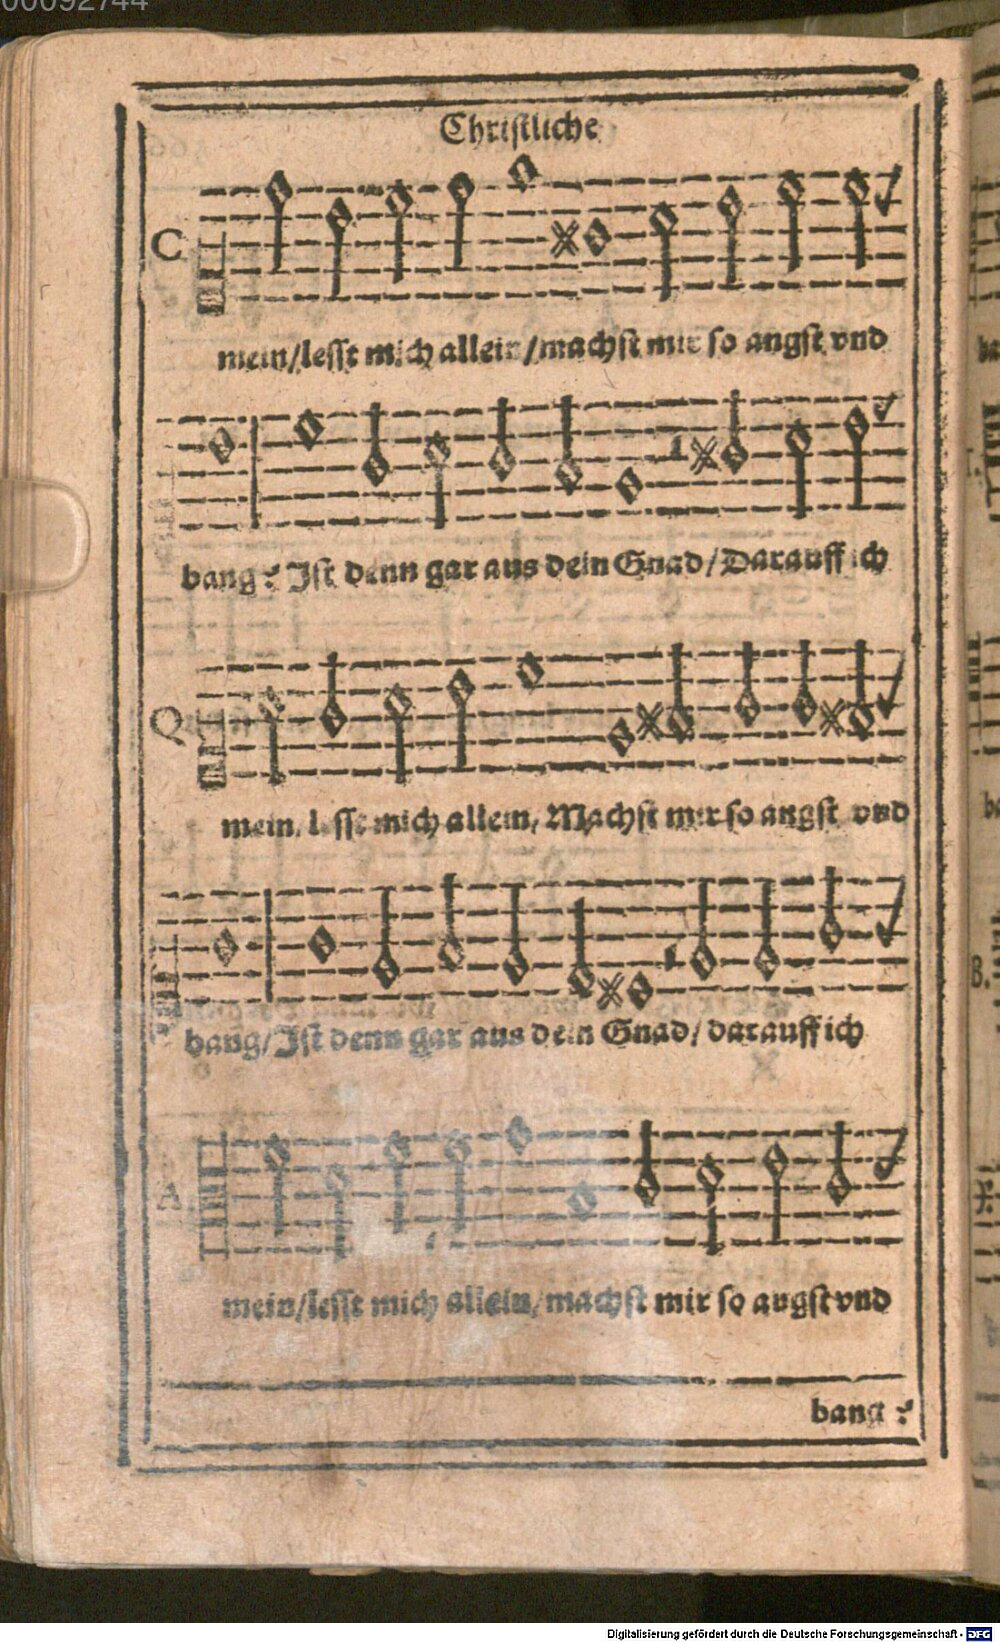 00092744
Christliche
C
mein/lesst mich allein/machst mir so angst vnd
bang? Ist denn gar aus dein Gnad/Darauff ich
Q
mein, lesst mich allein, Machst mir so angst vnd
bang/Ist denn gar aus dein Gnad/darauff ich
B.
A
mein/lesst mich allein/machst mir so angst vnd
bang?
Digitalisierung gefördert durch die Deutsche Forschungsgemeinschaft - DFG